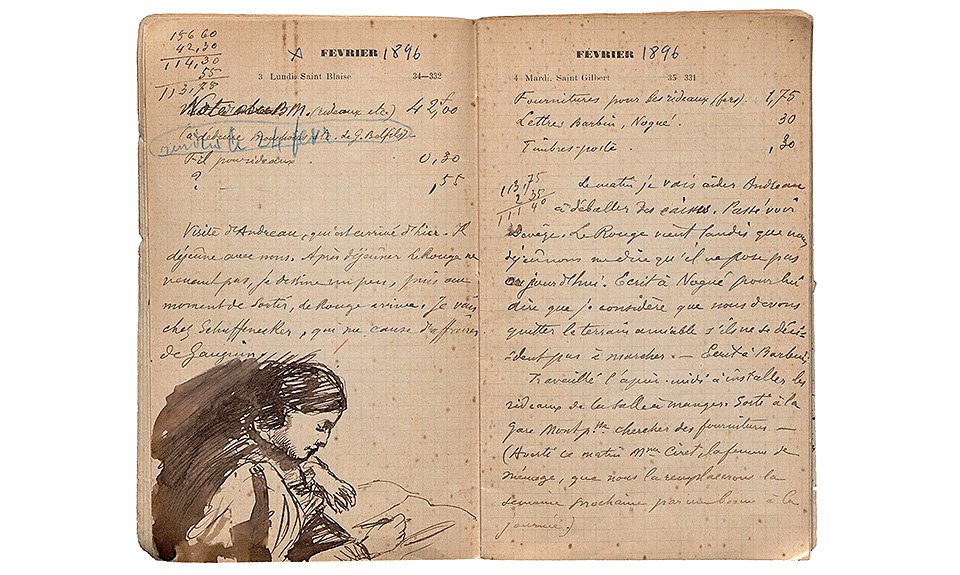 156 60
42,30
114,30
55
113,75
x FEVRIER 1896
3 Lundi Saint Blaise 34—332
Note chez BM. (rideaux etc) 42,00
rendu le 4 fevr
Fil pour rideaux . 0,30
? — ,55
Visite d'Andreau, qui est arrivé d'hier. Il
déjeune avec nous. Après déjeuner Le Rouge ne
venant pas, je dessine un peu, puis au
moment de sortir, Le Rouge arrive. Je vais
chez Schuffenecker, qui me cause d'affaires
de Gauguin.
FÉVRIER 1896
4 Mardi. Saint Gilbert 35 331
Fournitures pour les rideaux (fers). 1,75
Lettres Barbin, Nogué. 30
Timbres-poste. ,30
113,75
2 35
111 40
Le matin je vais aider Andreau
à déballer des caisses. Passé voir
. Le Rouge vient tandis que nous
déjeunons me dire qu'il ne pose pas
aujourd'hui. Ecrit à Nogué pour lui
dire que je considère que nous devons
quitter le terrain amiable s'ils ne se déci-
-dent pas à marcher. — Ecrit à Barbin.
Travaillé l'après-midi à installer les
rideaux de la salle à manger. Sorti à la
gare Montp.sse chercher des fournitures —
(Averti ce matin Mme Ciret, la femme de
ménage, que nous la remplacerons la
semaine prochaine par une bonne à la
journée.)